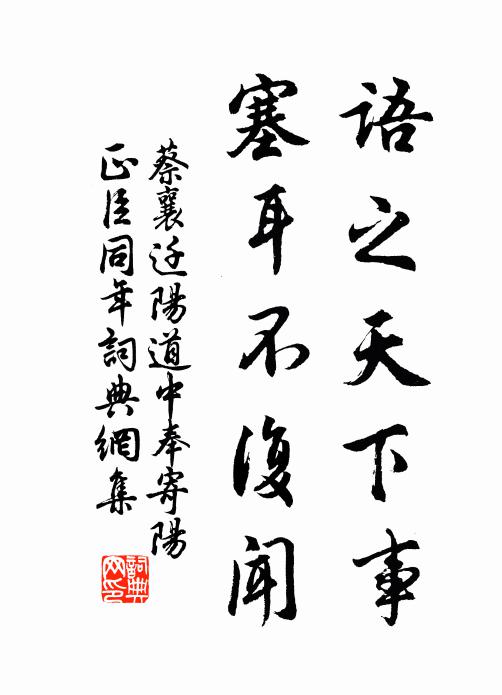 語之天下事
塞耳不復聞
蔡襄迁陽道中奉寄陽
正臣同年詞典網集
詞典
网印